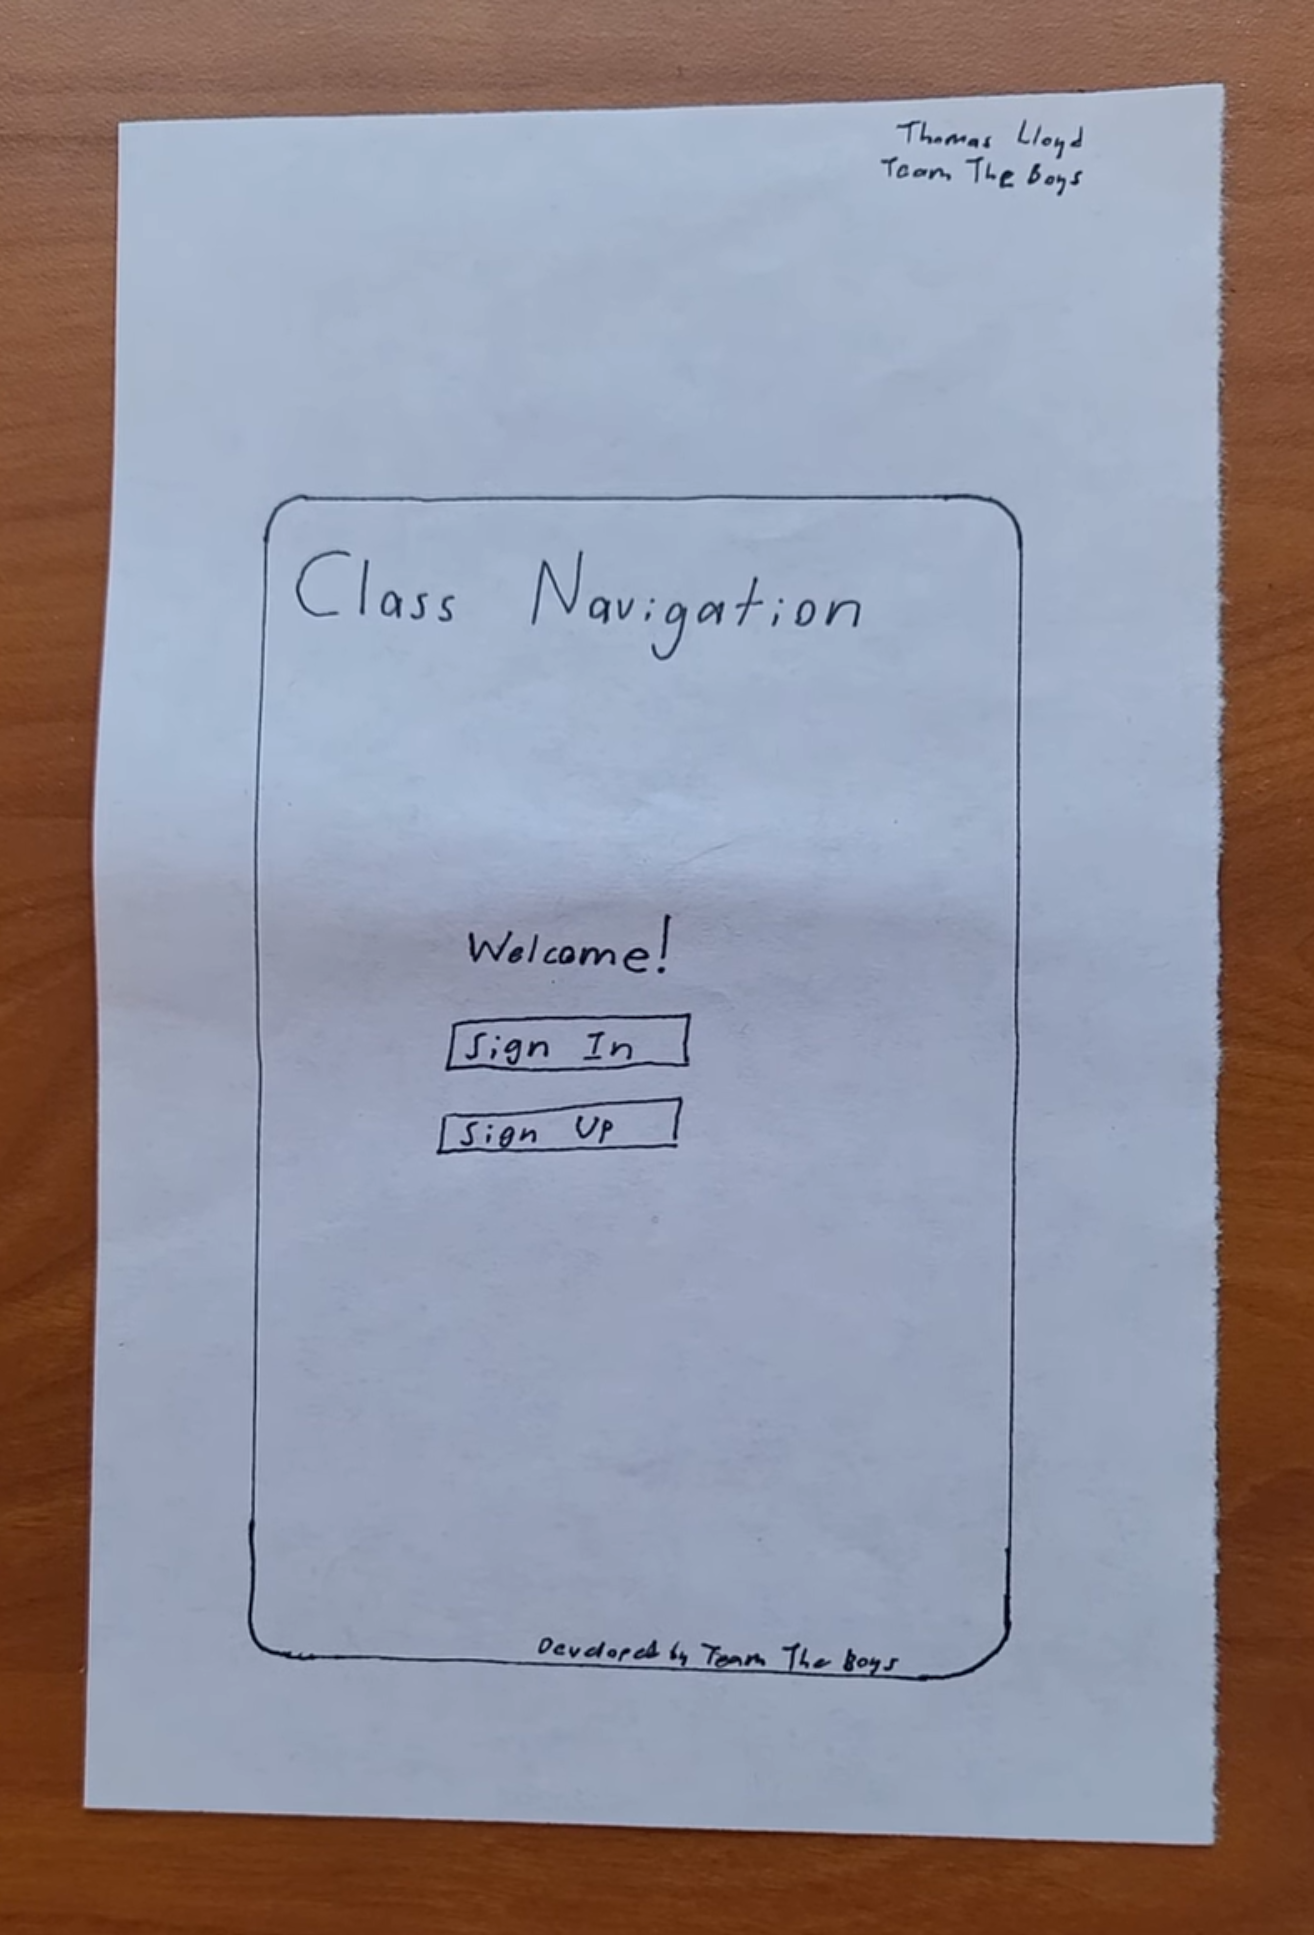 Thomas Lloyd
Team The Boys
Class Navigation
Welcome!
Sign In
Sign Up
Developed by Team The Boys